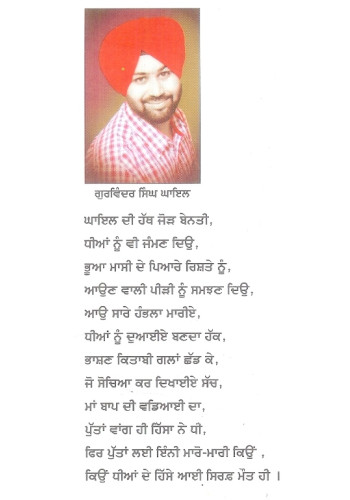 ਗੁਰਵਿੰਦਰ ਸਿੰਘ ਘਾਇਲ
ਘਾਇਲ ਦੀ ਹੱਥ ਜੋੜ ਬੇਨਤੀ,
ਧੀਆਂ ਨੂੰ ਵੀ ਜੰਮਣ ਦਿਉ,
ਭੂਆ ਮਾਸੀ ਦੇ ਪਿਆਰੇ ਰਿਸ਼ਤੇ ਨੂੰ,
ਆਉਣ ਵਾਲੀ ਪੀੜੀ ਨੂੰ ਸਮਝਣ ਦਿਉ,
ਆਉ ਸਾਰੇ ਹੰਭਲਾ ਮਾਰੀਏ,
ਧੀਆਂ ਨੂੰ ਦੁਆਈਏ ਬਣਦਾ ਹੱਕ,
ਭਾਸ਼ਣ ਕਿਤਾਬੀ ਗਲਾਂ ਛੱਡ ਕੇ,
ਜੋ ਸੋਚਿਆ ਕਰ ਦਿਖਾਈਏ ਸੱਚ,
ਮਾਂ ਬਾਪ ਦੀ ਵਡਿਆਈ ਦਾ,
ਪੁੱਤਾਂ ਵਾਂਗ ਹੀ ਹਿੱਸਾ ਨੇ ਧੀ,
ਫਿਰ ਪੁੱਤਾਂ ਲਈ ਇੰਨੀ ਮਾਰੋ-ਮਾਰੀ ਕਿਉਂ ,
ਕਿਉਂ ਧੀਆਂ ਦੇ ਹਿੱਸੇ ਆਈ ਸਿਰਫ਼ ਮੌਤ ਹੀ ।